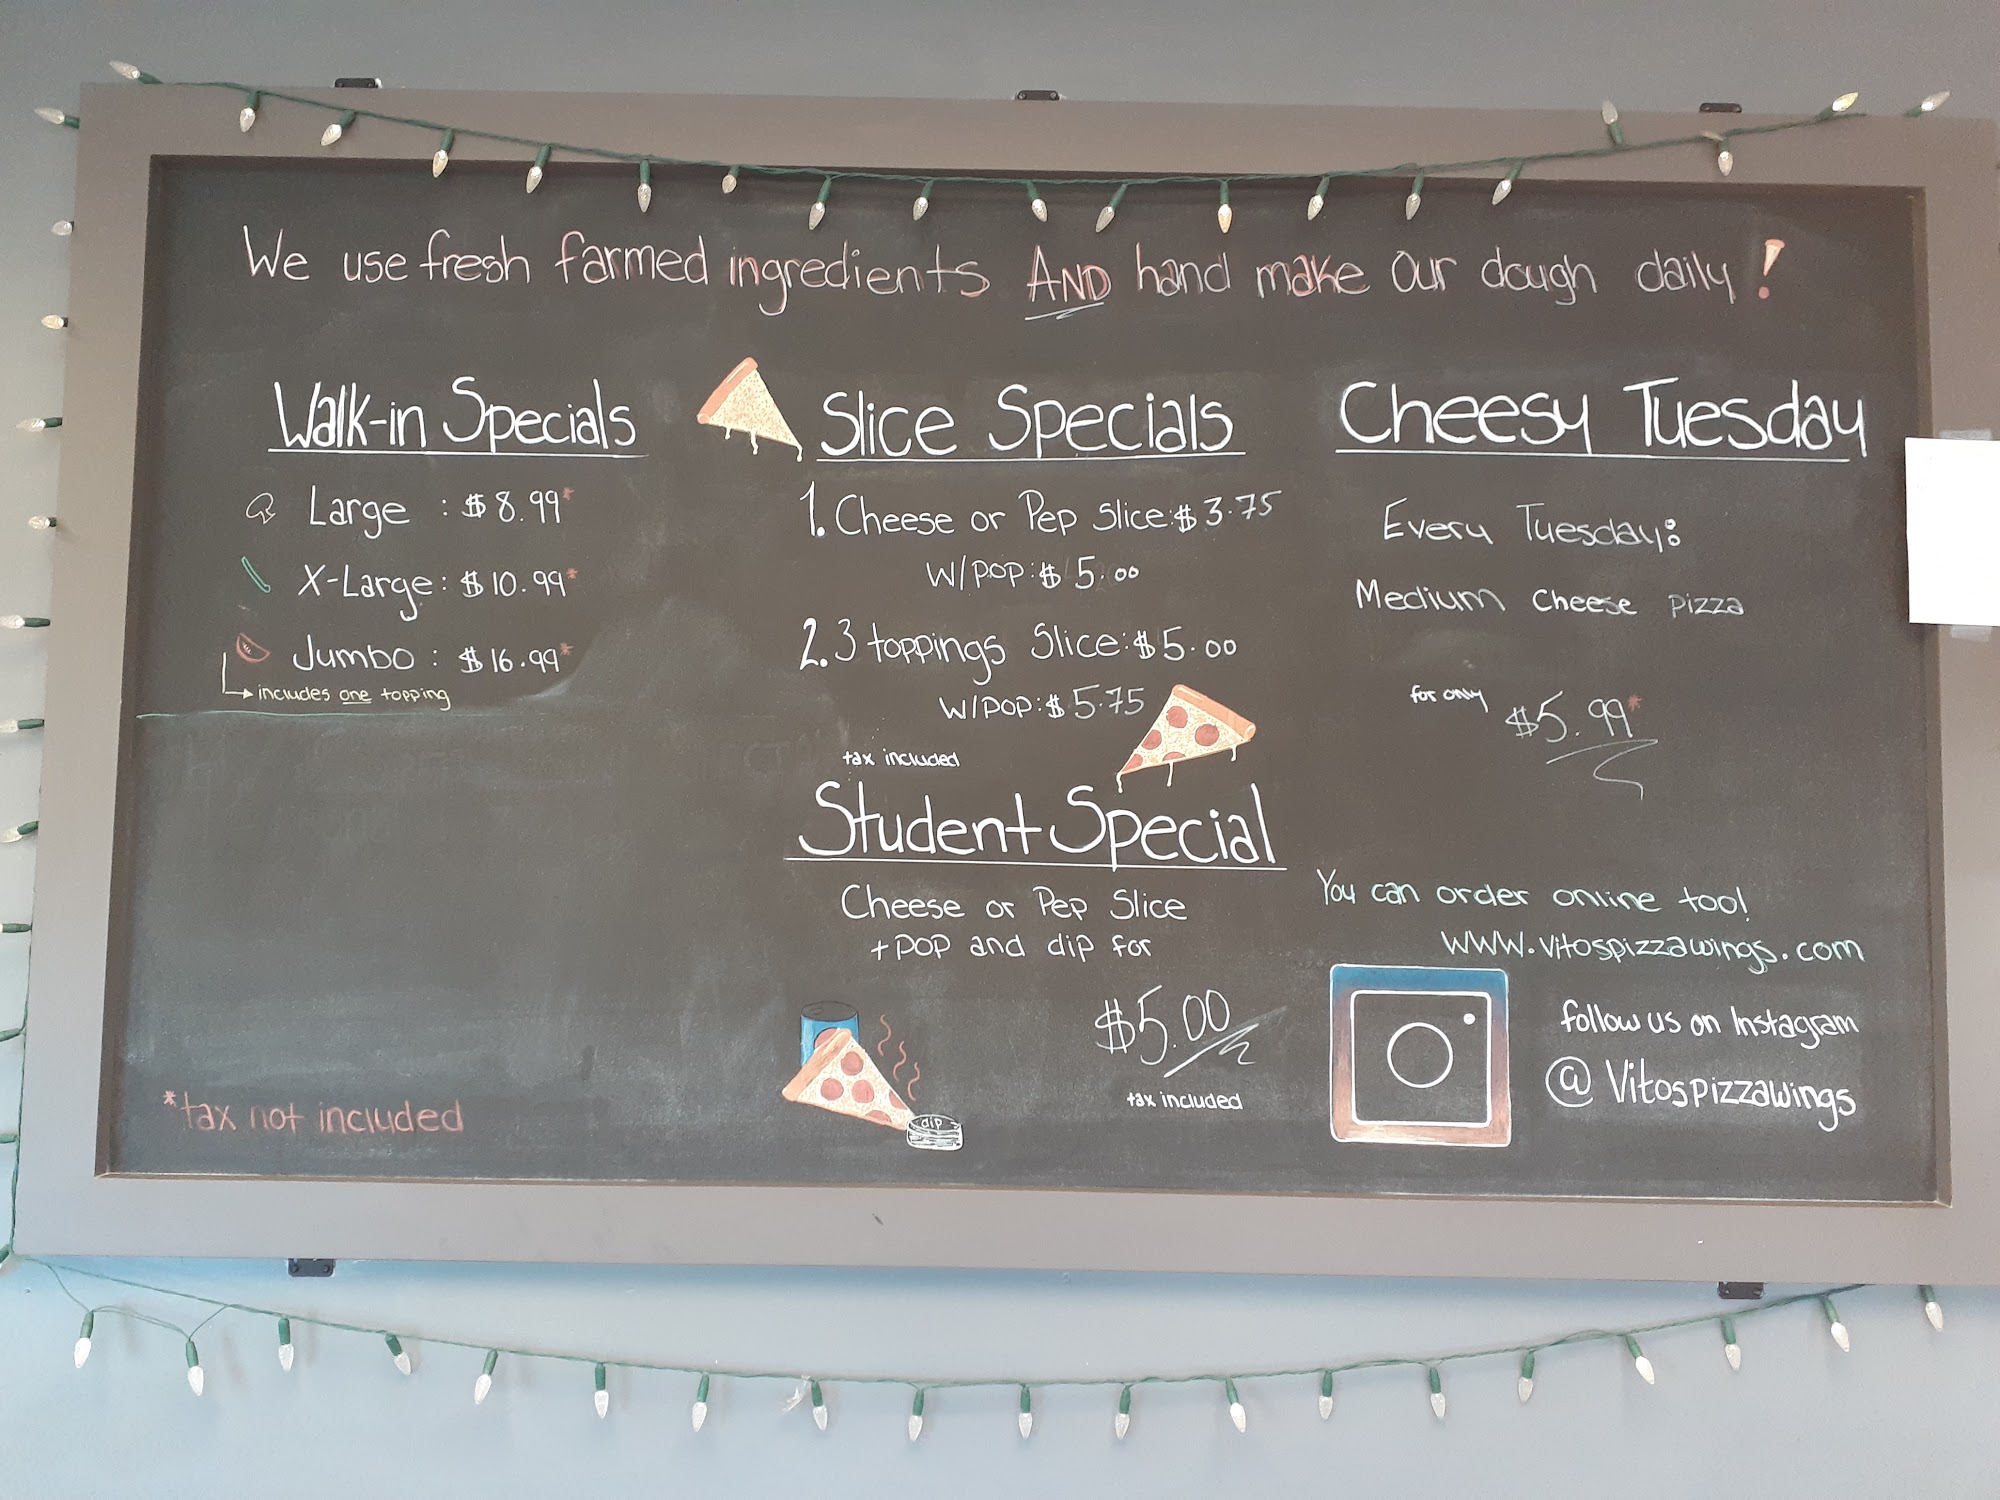 We use fresh farmed ingredients AND hand make our dough daily!
Walk-in Specials
Large : $8.99*
X-Large: $10.99*
Jumbo : $16.99*
includes one topping
*tax not included
Slice Specials
1. Cheese or Pep Slice: $3.75
W/POP: $5.00
2. 3 toppings Slice: $5.00
W/POP: $5.75
tax included
Student Special
Cheese or Pep Slice
+ POP and dip for
$5.00
tax included
dip
Cheesy Tuesday
Every Tuesday:
Medium Cheese Pizza
for only
$5.99*
You can order online too!
WWW.vitospizzawings.com
follow us on Instagram
@Vitospizzawings